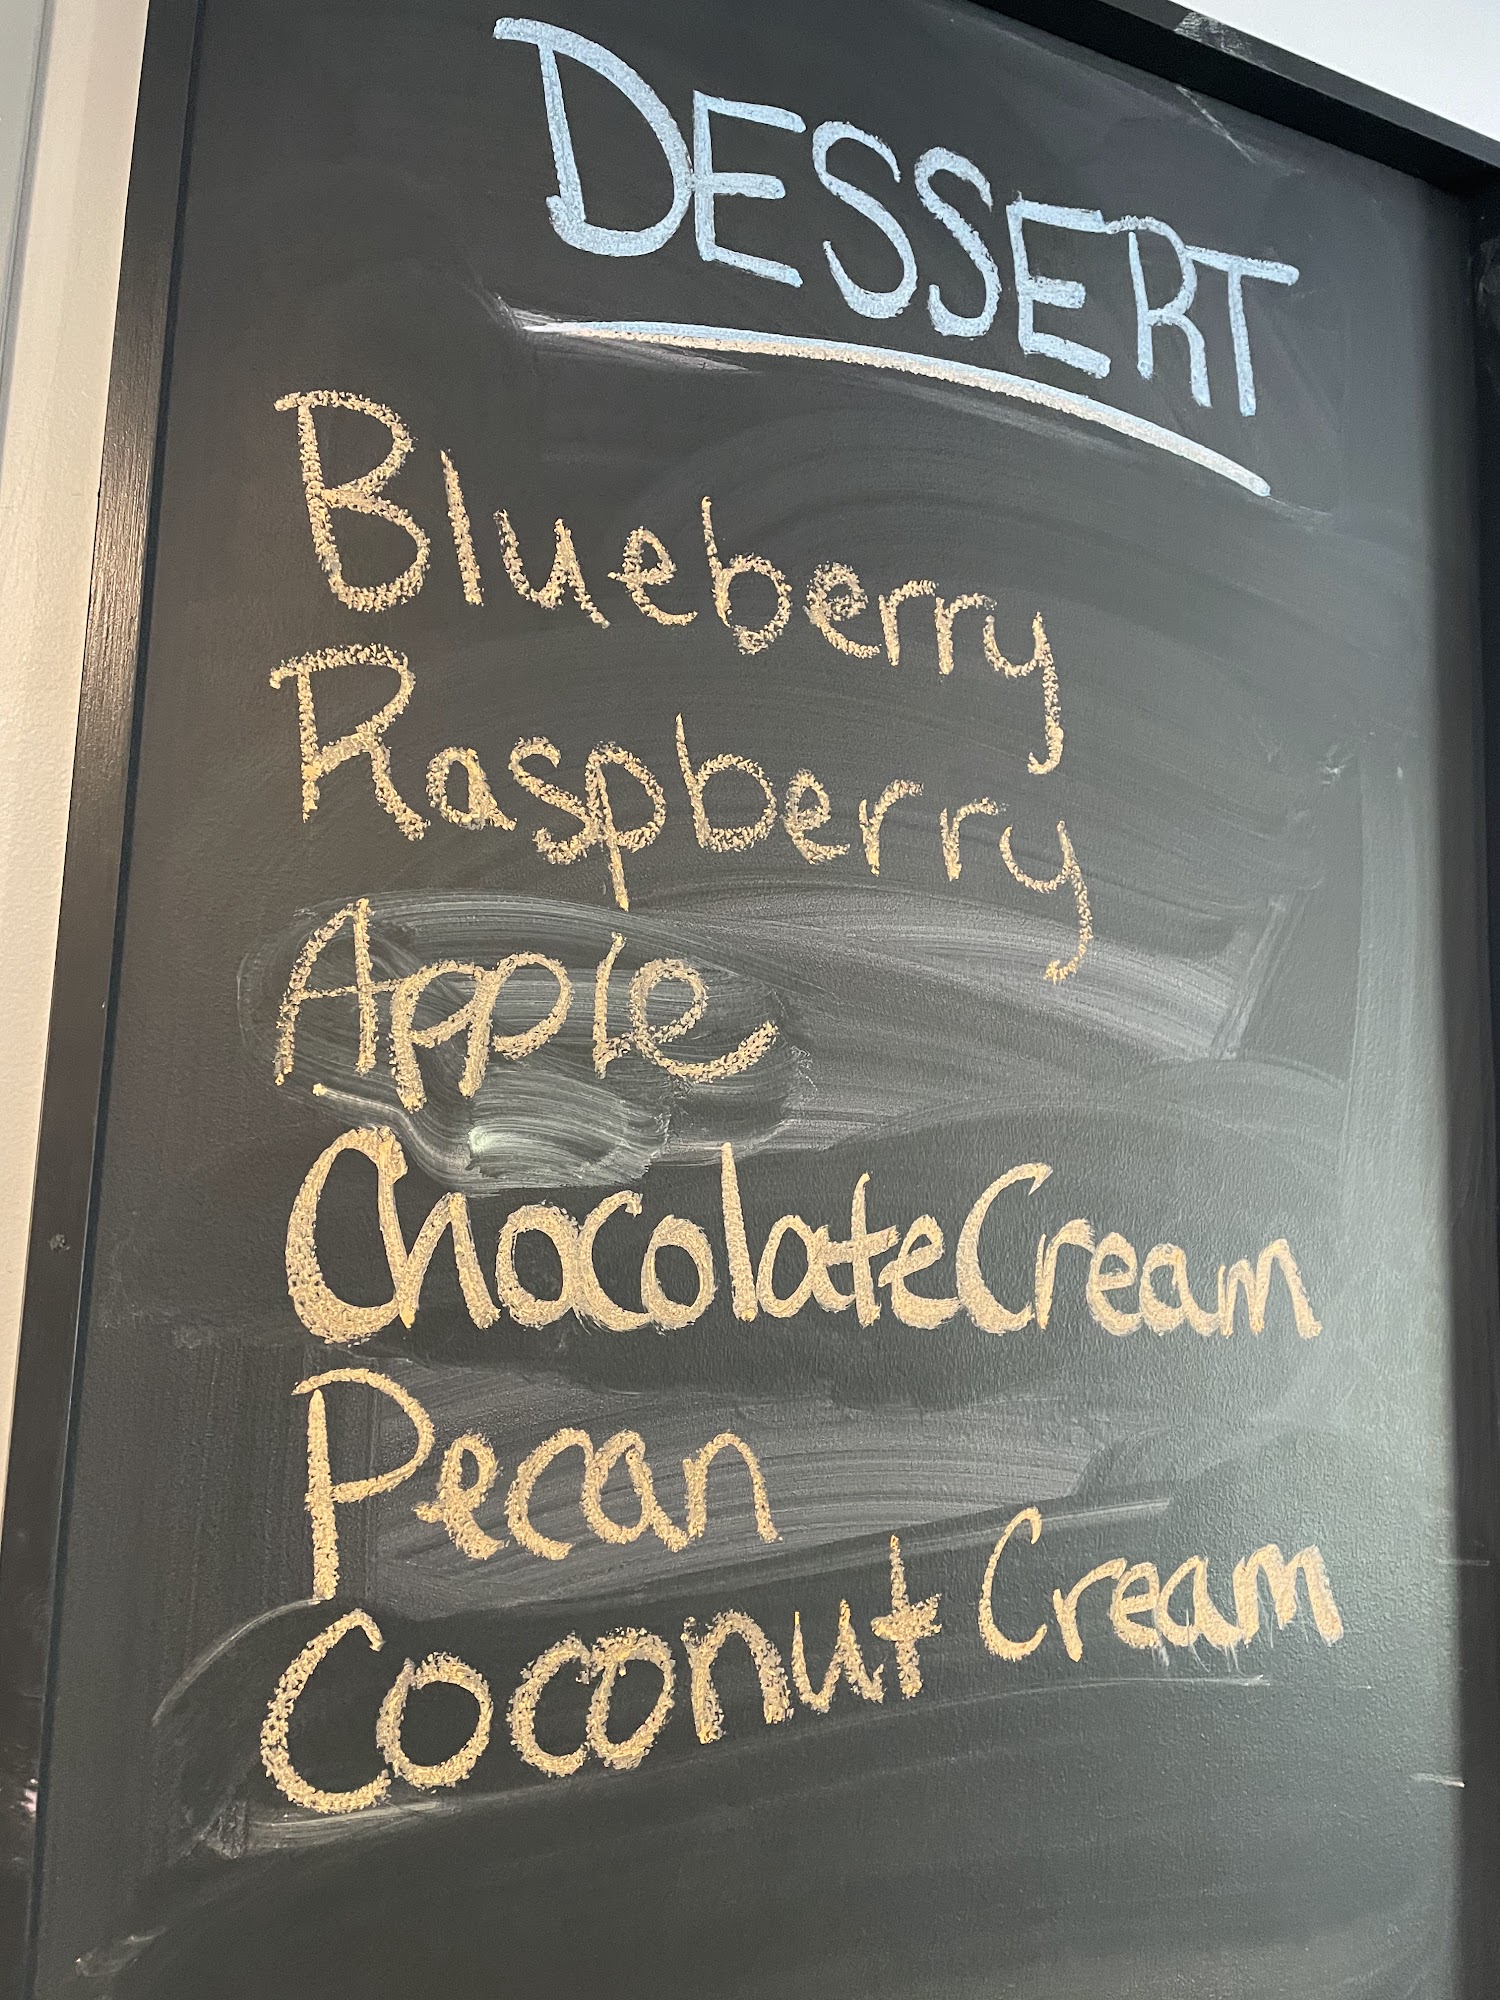 DESSERT
Blueberry
Raspberry
Apple
Chocolate Cream
Pecan
Coconut Cream